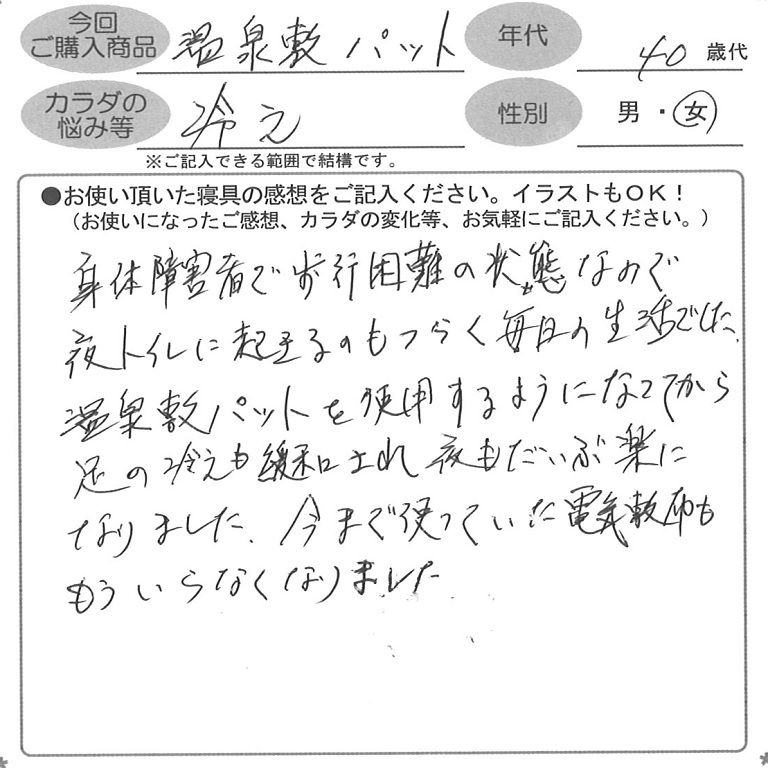 今回
ご購入商品
温泉敷パット
年代
40 歳代
カラダの
悩み等
冷え
性別
男・女
※ご記入できる範囲で結構です。
●お使い頂いた寝具の感想をご記入ください。イラストもOK！
（お使いになったご感想、カラダの変化等、お気軽にご記入ください。）
身体障害者で歩行困難の状態なので
夜トイレに起きるのもつらく毎日の生活でした。
温泉敷パットを使用するようになってから
足の冷えも緩和され夜もだいぶ楽に
なりました。今まで使っていた電気敷布も
もういらなくなりました